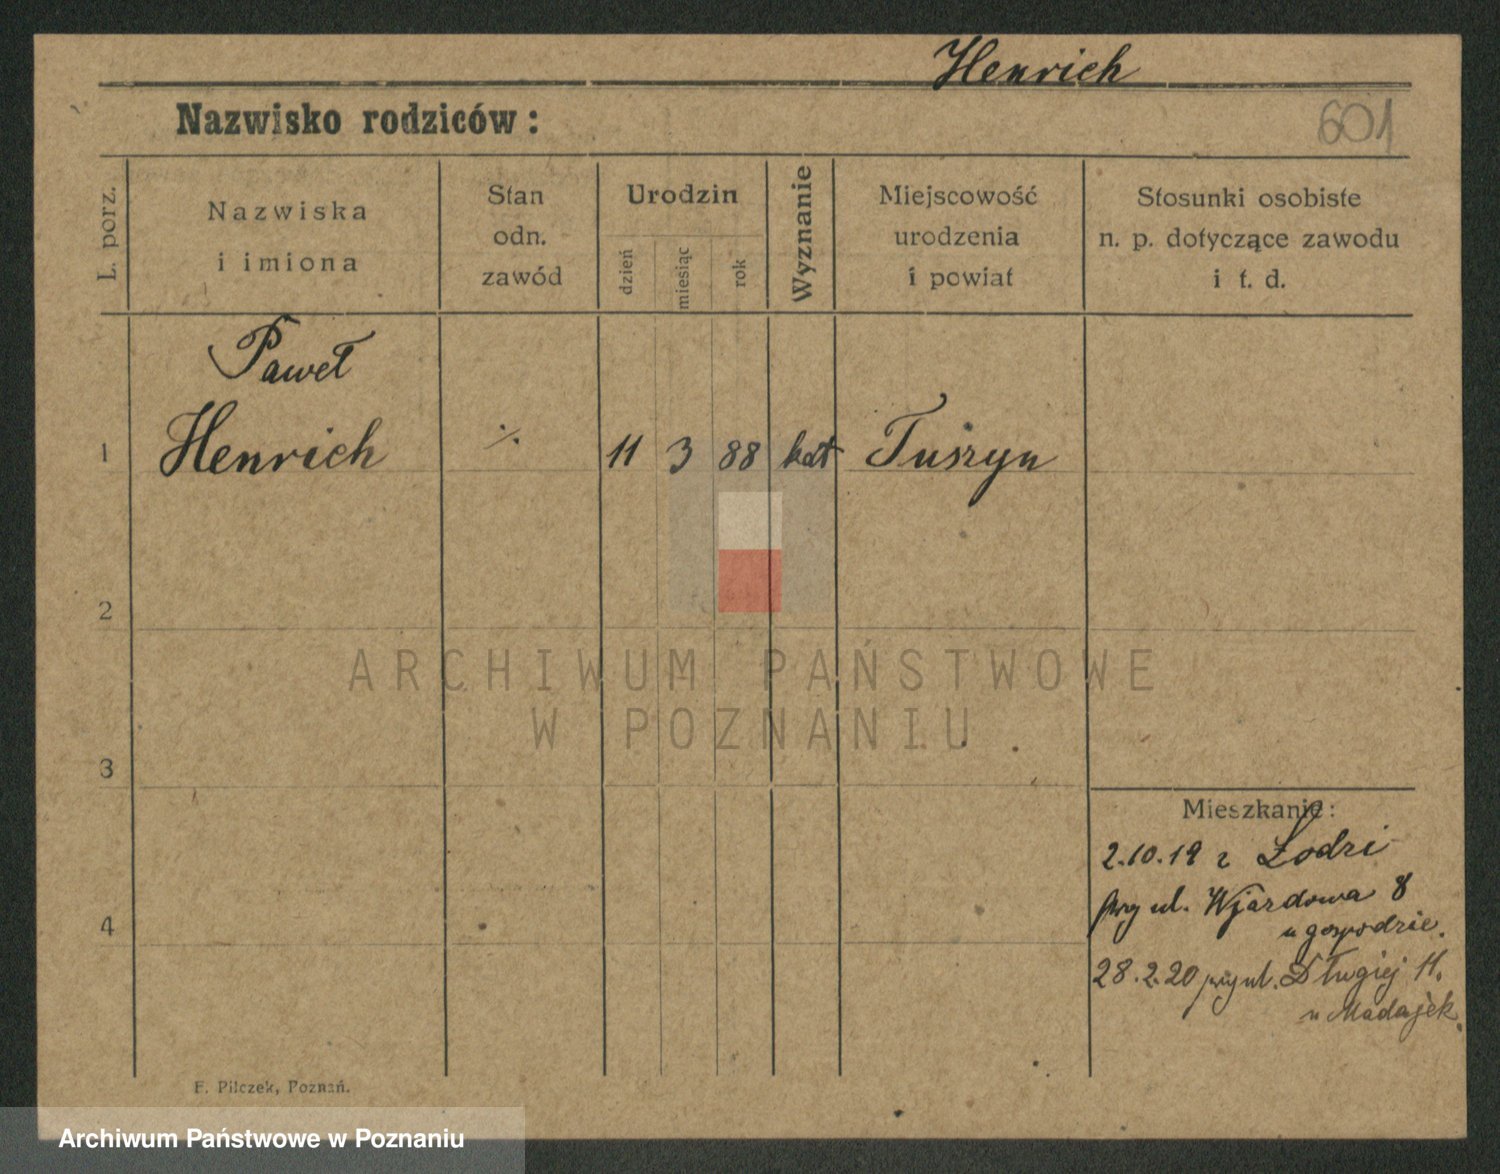 Henrich
Nazwisko rodziców:
601
L. porz.
Nazwiska
i imiona
Stan
odn.
zawód
Urodzin
dzień
miesiąc
rok
Wyznanie
Miejscowość
urodzenia
i powiat
Stosunki osobiste
n. p. dotyczące zawodu
i t. d.
Paweł
1 Henrich ./. 11 3 88 kat Tuszyn
2
ARCHIWUM PAŃSTWOWE
W POZNANIU
3
Mieszkanie:
2.10.19 z Łodzi
przy ul. Wjazdowa 8
u gospodzie.
4
28.2.20 przy ul. Długiej 11.
u Madajek.
F. Pilczek, Poznań.
Archiwum Państwowe w Poznaniu